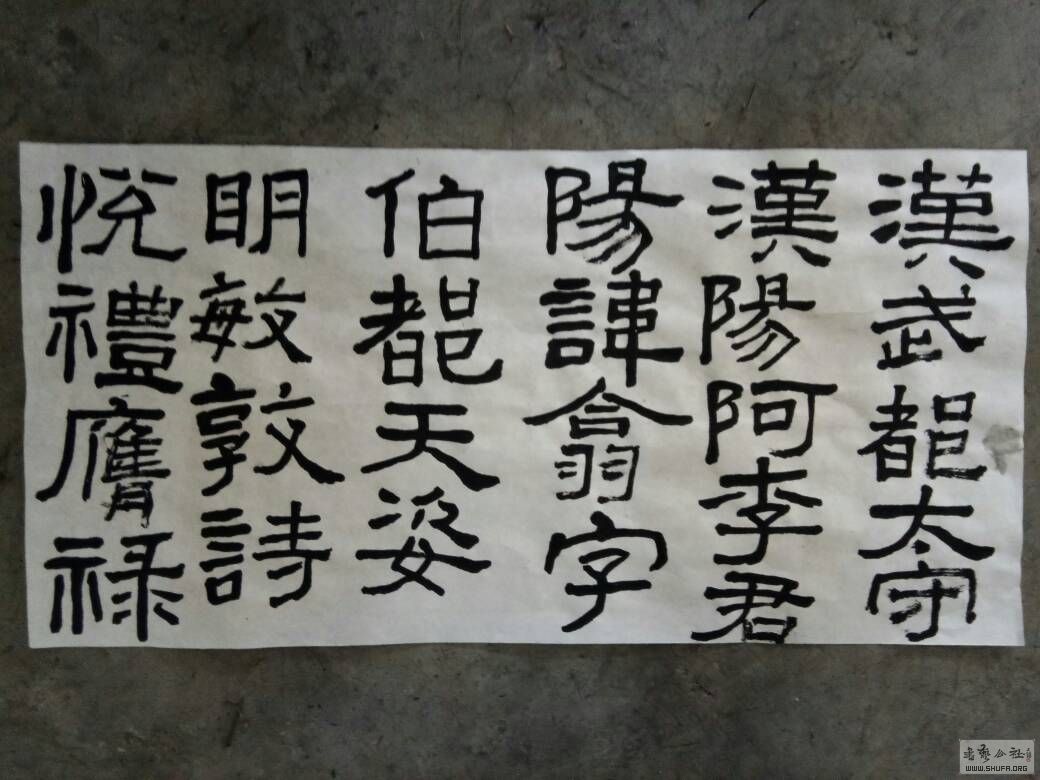 漢武都太守
漢陽阿李君
陽諱翕字
伯都天姿
明敏敦詩
悅禮膺祿
書藝公社
WWW.SHUFA.ORG